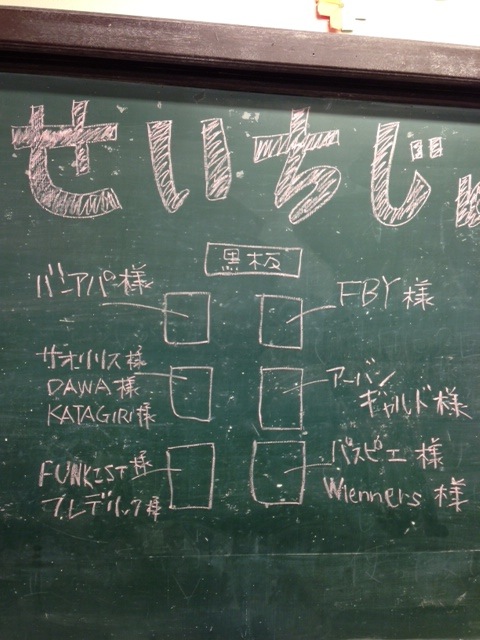 せいちじ
黒板
バンアパ様
FBY様
サオリリス様
DAWA様
KATAGIRI様
アーバン
ギャルド様
FUNKIST様
フレデリック様
パスピエ様
Wienners様